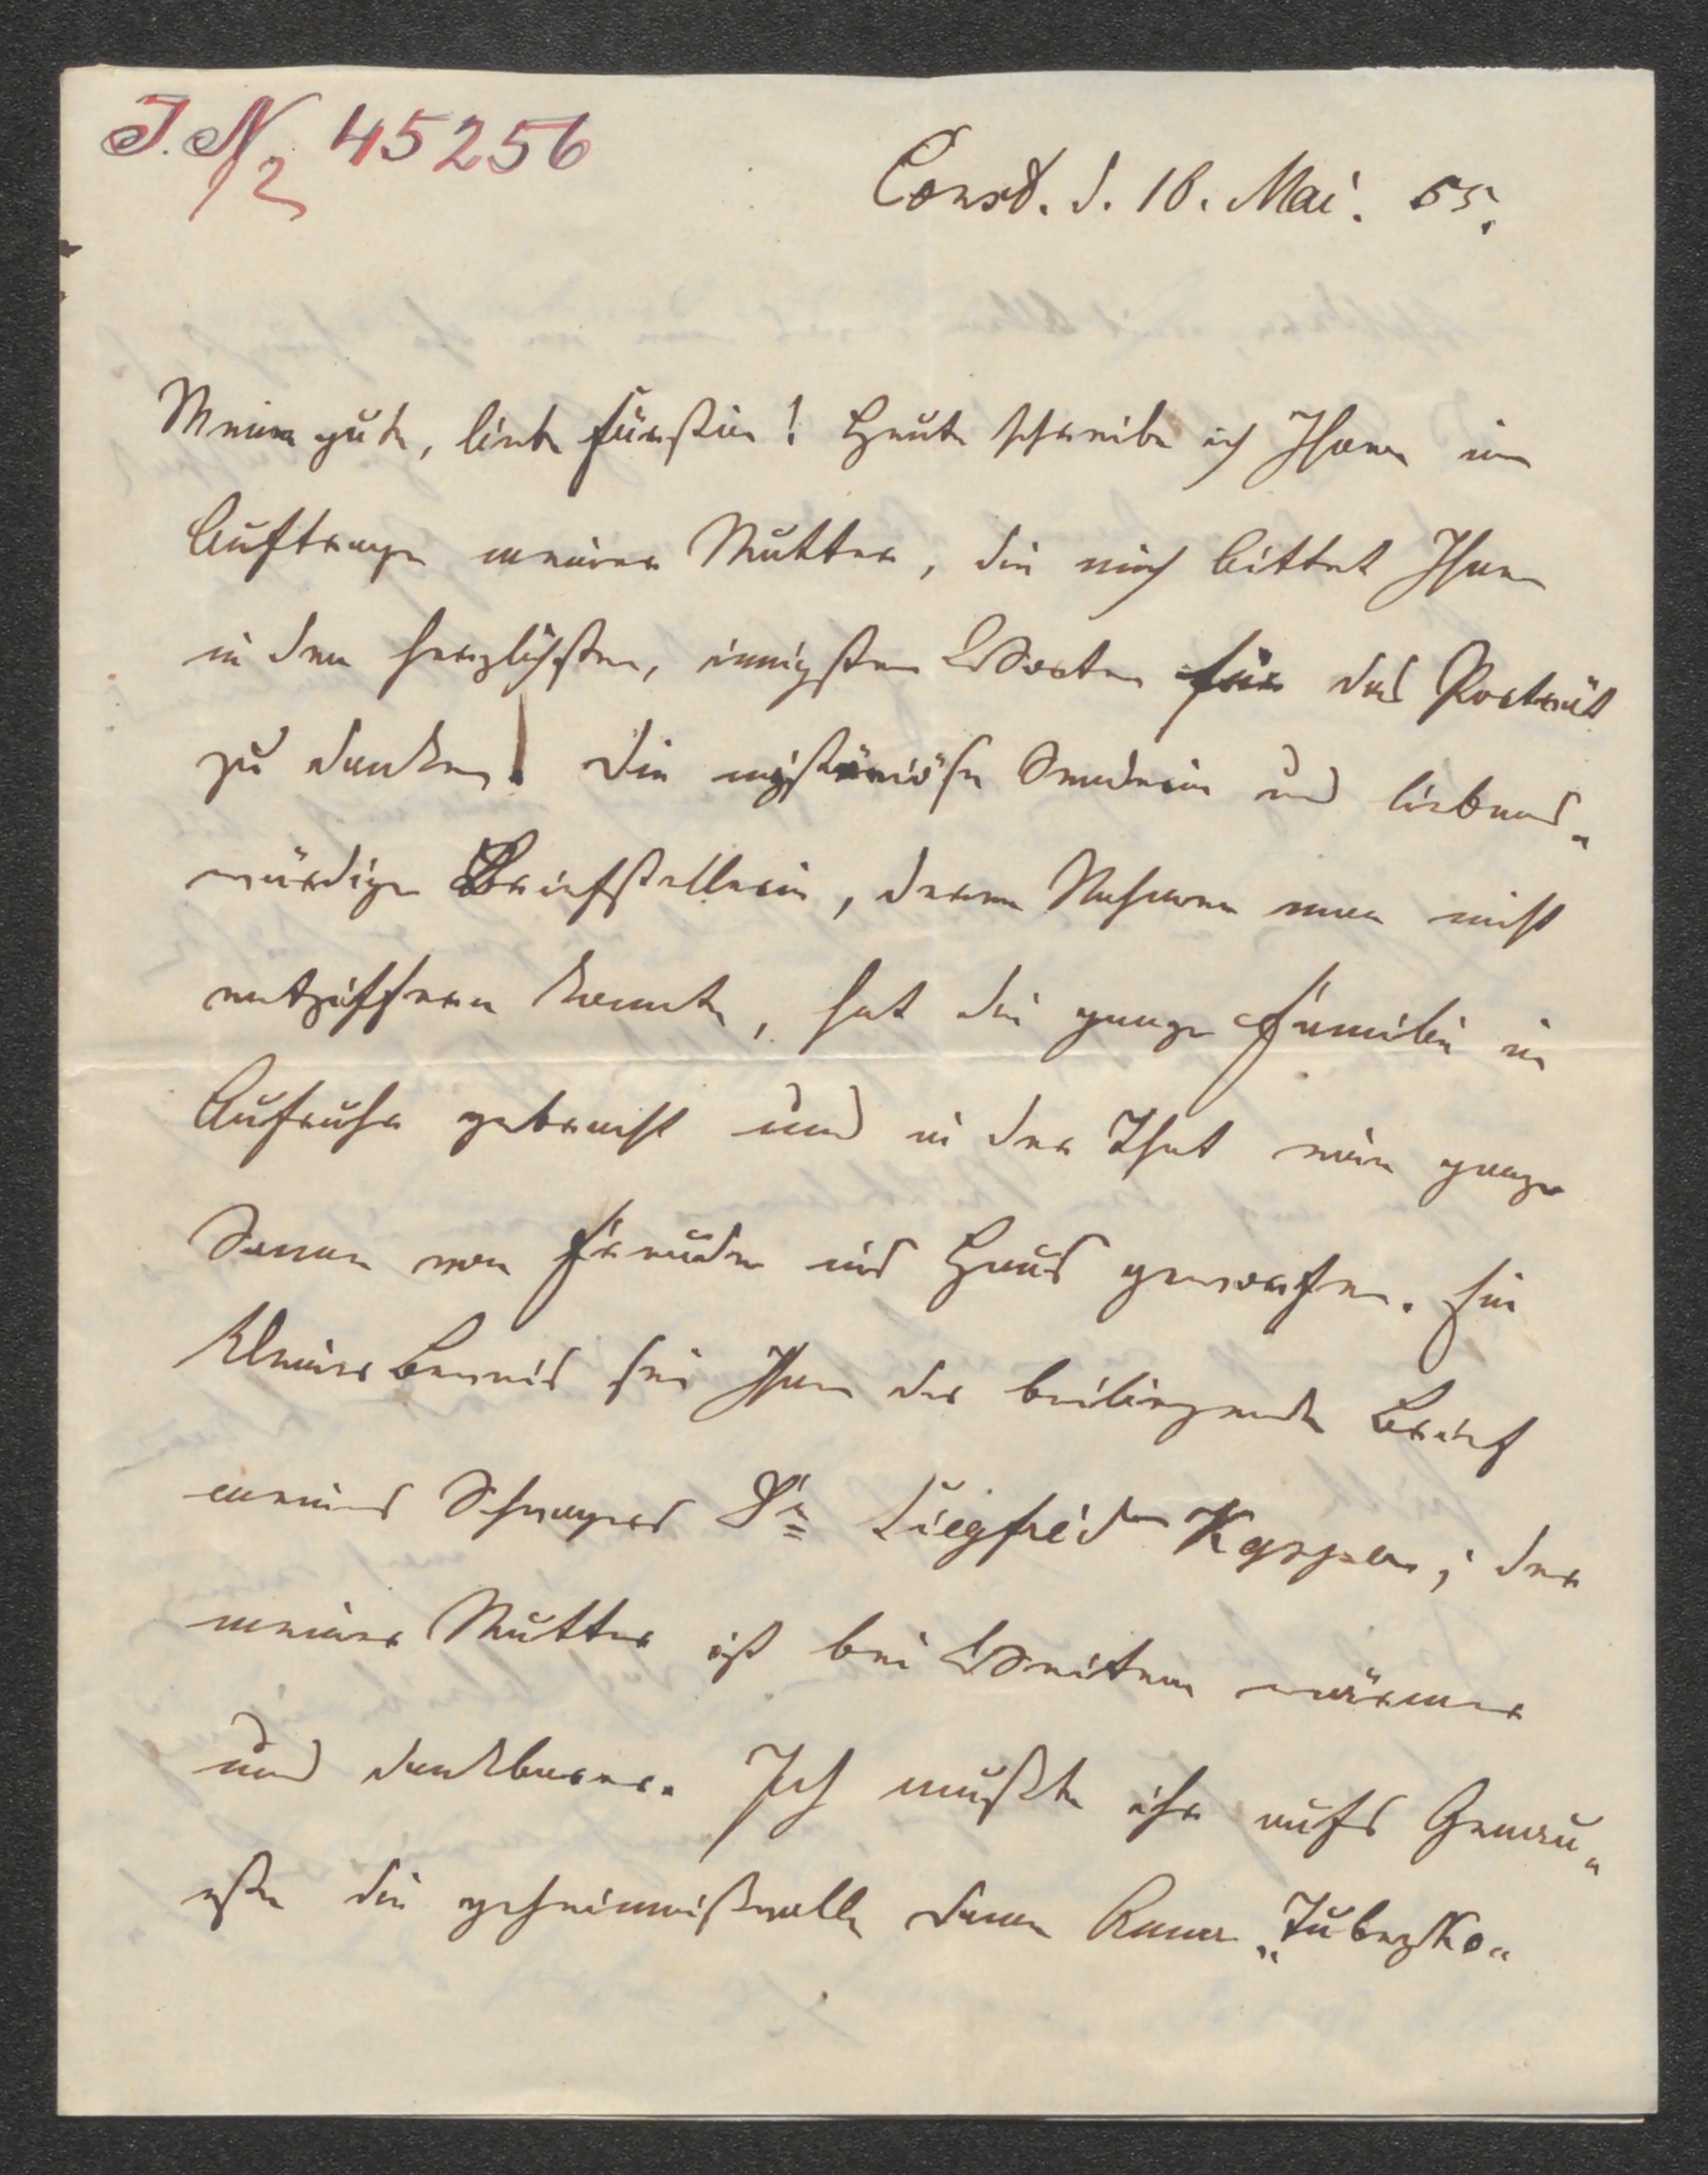 J. N. 45256
12
Const. d. 18. Mai. 55.
Meine gute, liebe Fürstin! Heute schreibe ich Ihnen im
Auftrage meiner Mutter, die mich bittet Ihnen
in den herzlichsten, innigsten Worten für das Porträt
zu danken! Die mysteriöse Senderin und liebens„
würdige Briefstellerin, deren Nahmen man nicht
entziffern konnte, hat die ganze Familie in
Aufruhr gebracht und in der That eine ganze
Sonne von Freuden ins Haus geworfen. Ein
kleiner Beweis sei Ihnen der beiliegende Brief
meines Schwagers Dr Siegfried Kapper; der
meiner Mutter ist bei Weitem wärmer
und dankbarer. Ich mußte ihr aufs Genau„
este die geheimnißvolle Dame